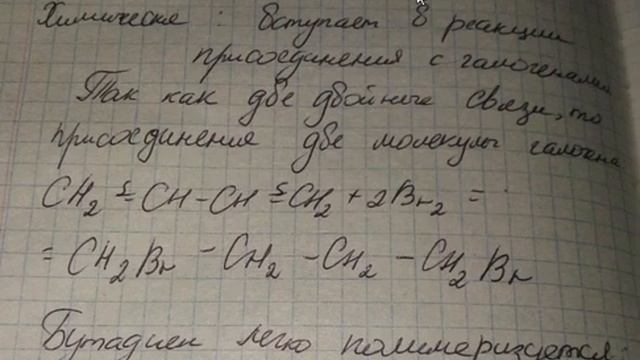 Химические : вступает в реакции
присоединения с галогенами
Так как две двойные связи, то
присоединения две молекулы галогена
CH2 = CH - CH = CH2 + 2Br2 =
= CH2Br - CH2 - CH2 - CH2Br
Бутадиен легко полимеризуется